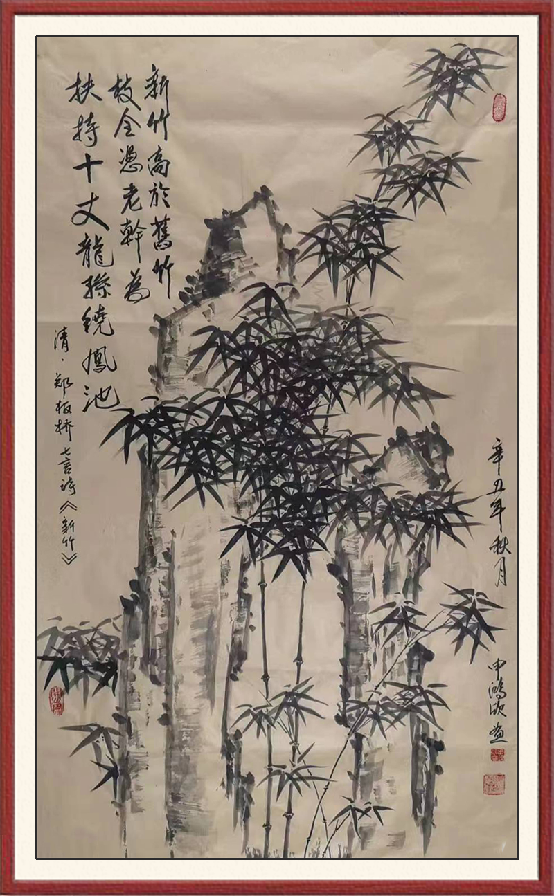 新竹高於舊竹
枝全憑老幹為
扶持十丈龍孫繞鳳池
清·鄭板橋七言詩《新竹》
辛丑年秋月
申鴻欣畫